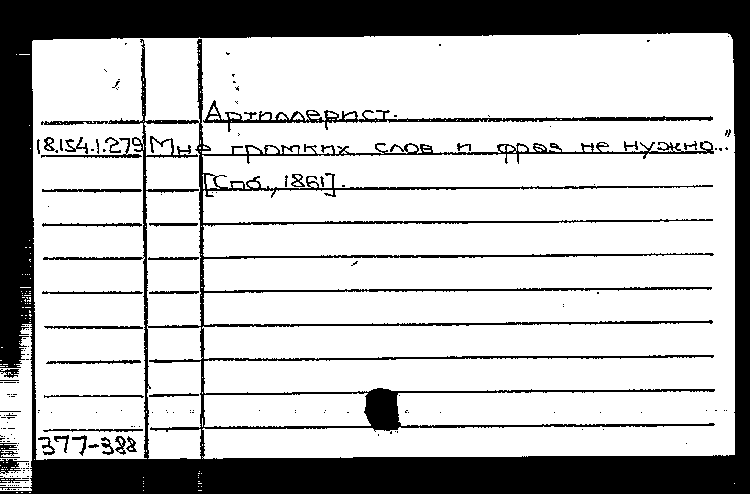 Артиллерист.
18.154.1.279 Мне громких слов и фраз не нужно..."
[Спб., 1861].
377-388